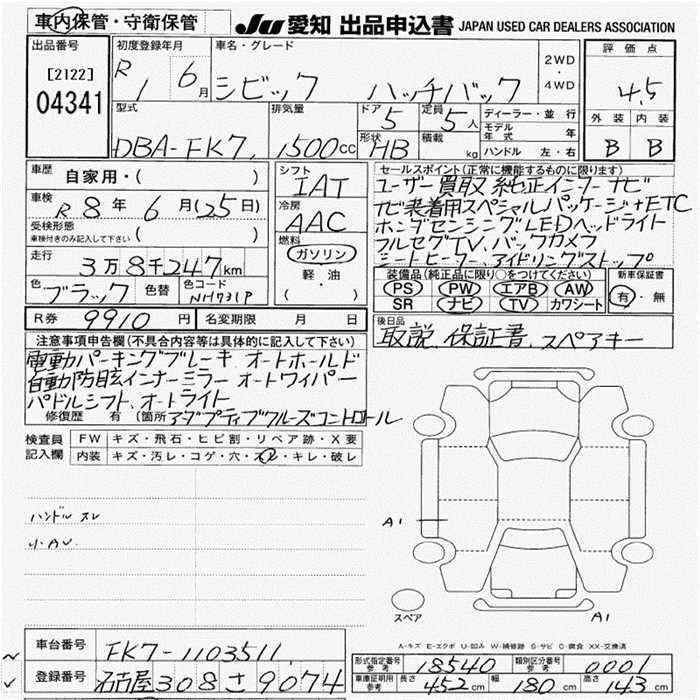 車内保管・守衛保管
JU 愛知 出品申込書 JAPAN USED CAR DEALERS ASSOCIATION
出品番号
[2122]
04341
初度登録年月
R 1 6月
車名・グレード
シビック ハッチバック
2WD
・
4WD
評価点
4.5
外装 内装
B B
型式
DBA-FK7
排気量
1500cc
ドア 5
形状 HB
定員 5人
積載 kg
ディーラー・並行
モデル年式 年
ハンドル 左・右
車歴 自家用・( )
車検 R 8年 6月(25日)
受検形態
車検付きのみ記入して下さい ( )
走行 3万8千247km
色 ブラック 色替 色コード NH731P
シフト
IAT
冷房
AAC
燃料
ガソリン
軽・油
( )
セールスポイント(正常に機能するものに限ります)
ユーザー買取 純正インターナビ
ナビ装着用スペシャルパッケージ+ETC
ホンダセンシング LEDヘッドライト
フルセグTV、バックカメラ
シートヒーター、アイドリングストップ
装備品(純正品に限り○をつけてください)
PS PW エアB AW
SR ナビ TV カワシート
新車保証書
有・無
R券 9910円 名変期限 月 日
後日品
取説、保証書、スペアキー
注意事項申告欄(不具合内容等は具体的に記入して下さい)
電動パーキングブレーキ オートホールド
自動防眩インナーミラー オートワイパー
パドルシフト、オートライト
修復歴 有 (箇所 アダプティブクルーズコントロール
検査員記入欄
FW キズ・飛石・ヒビ割・リペア跡・X要
内装 キズ・汚レ・コゲ・穴・スレ・キレ・破レ
ハンドル スレ
A1
スペア
A1
A-キズ E-エクボ U-凹み W-補修跡 S-サビ C-腐食 XX-交換済
車台番号 FK7-1103511
登録番号 名古屋308さ9074
形式指定番号 参考 18540 類別区分番号 参考 0001
車庫証明用 参考 長さ 452cm 幅 180cm 高さ 143cm